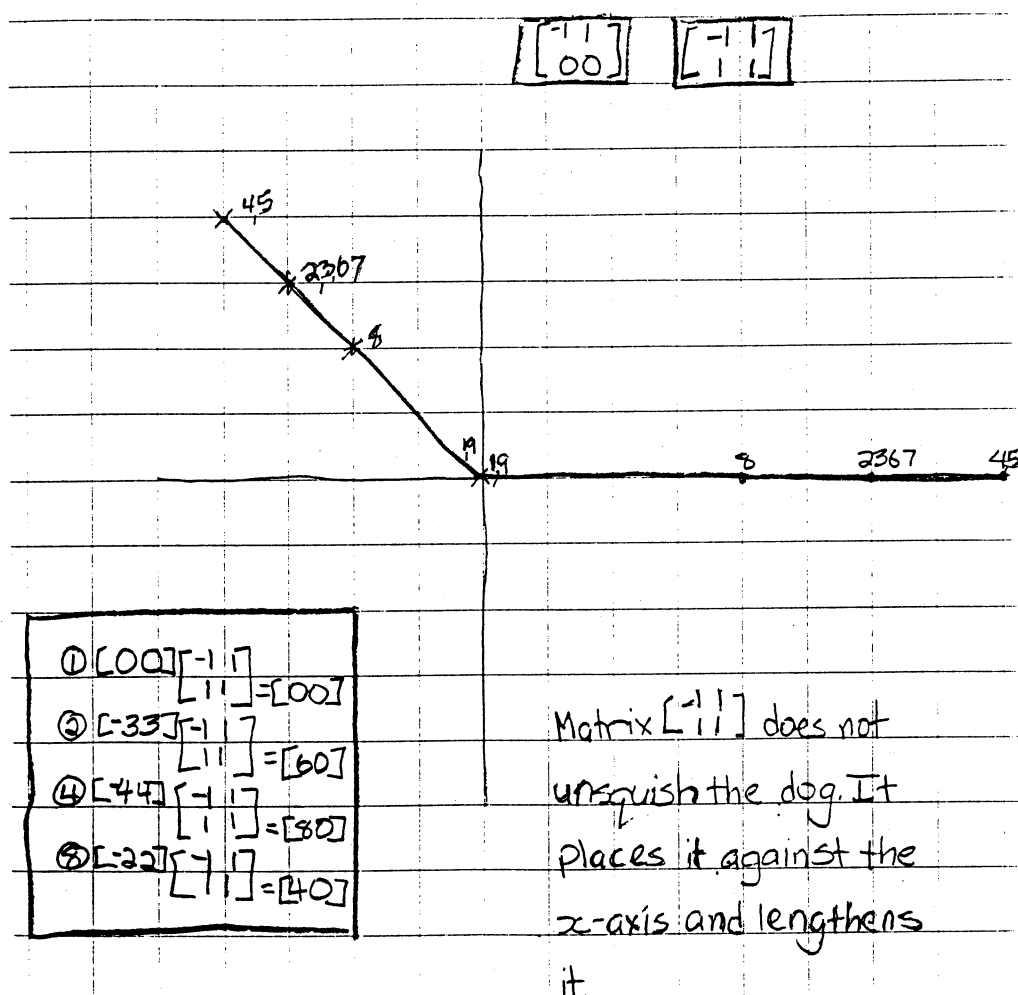 [-1 1] [-1 1]
[0 0] [1 1]
4,5
2,3,6,7
8
1,9 1,9
8 2367 4,5
① [0 0] [-1 1]
[1 1] = [0 0]
② [-3 3] [-1 1]
[1 1] = [6 0]
④ [-4 4] [-1 1]
[1 1] = [8 0]
⑧ [-2 2] [-1 1]
[1 1] = [4 0]
Matrix [-1 1]
[1 1] does not
unsquish the dog. It
places it against the
x-axis and lengthens
it.